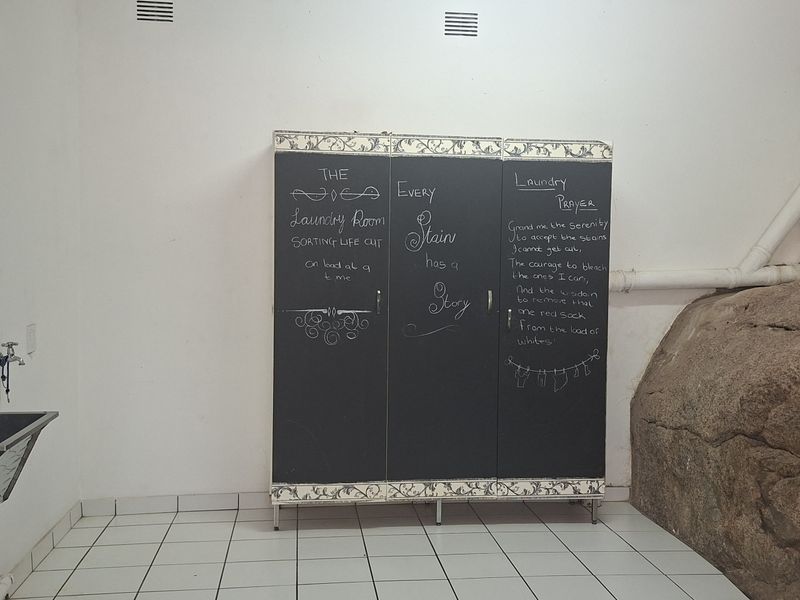 THE
Laundry Room
SORTING LIFE OUT
on load at a
time
EVERY
Stain
has a
Story
Laundry
PRAYER
Grand me the serenity
to accept the stains
I cannot get out,
The courage to bleach
the ones I can,
And the wisdom
to remove that
one red sock
From the load of
whites!